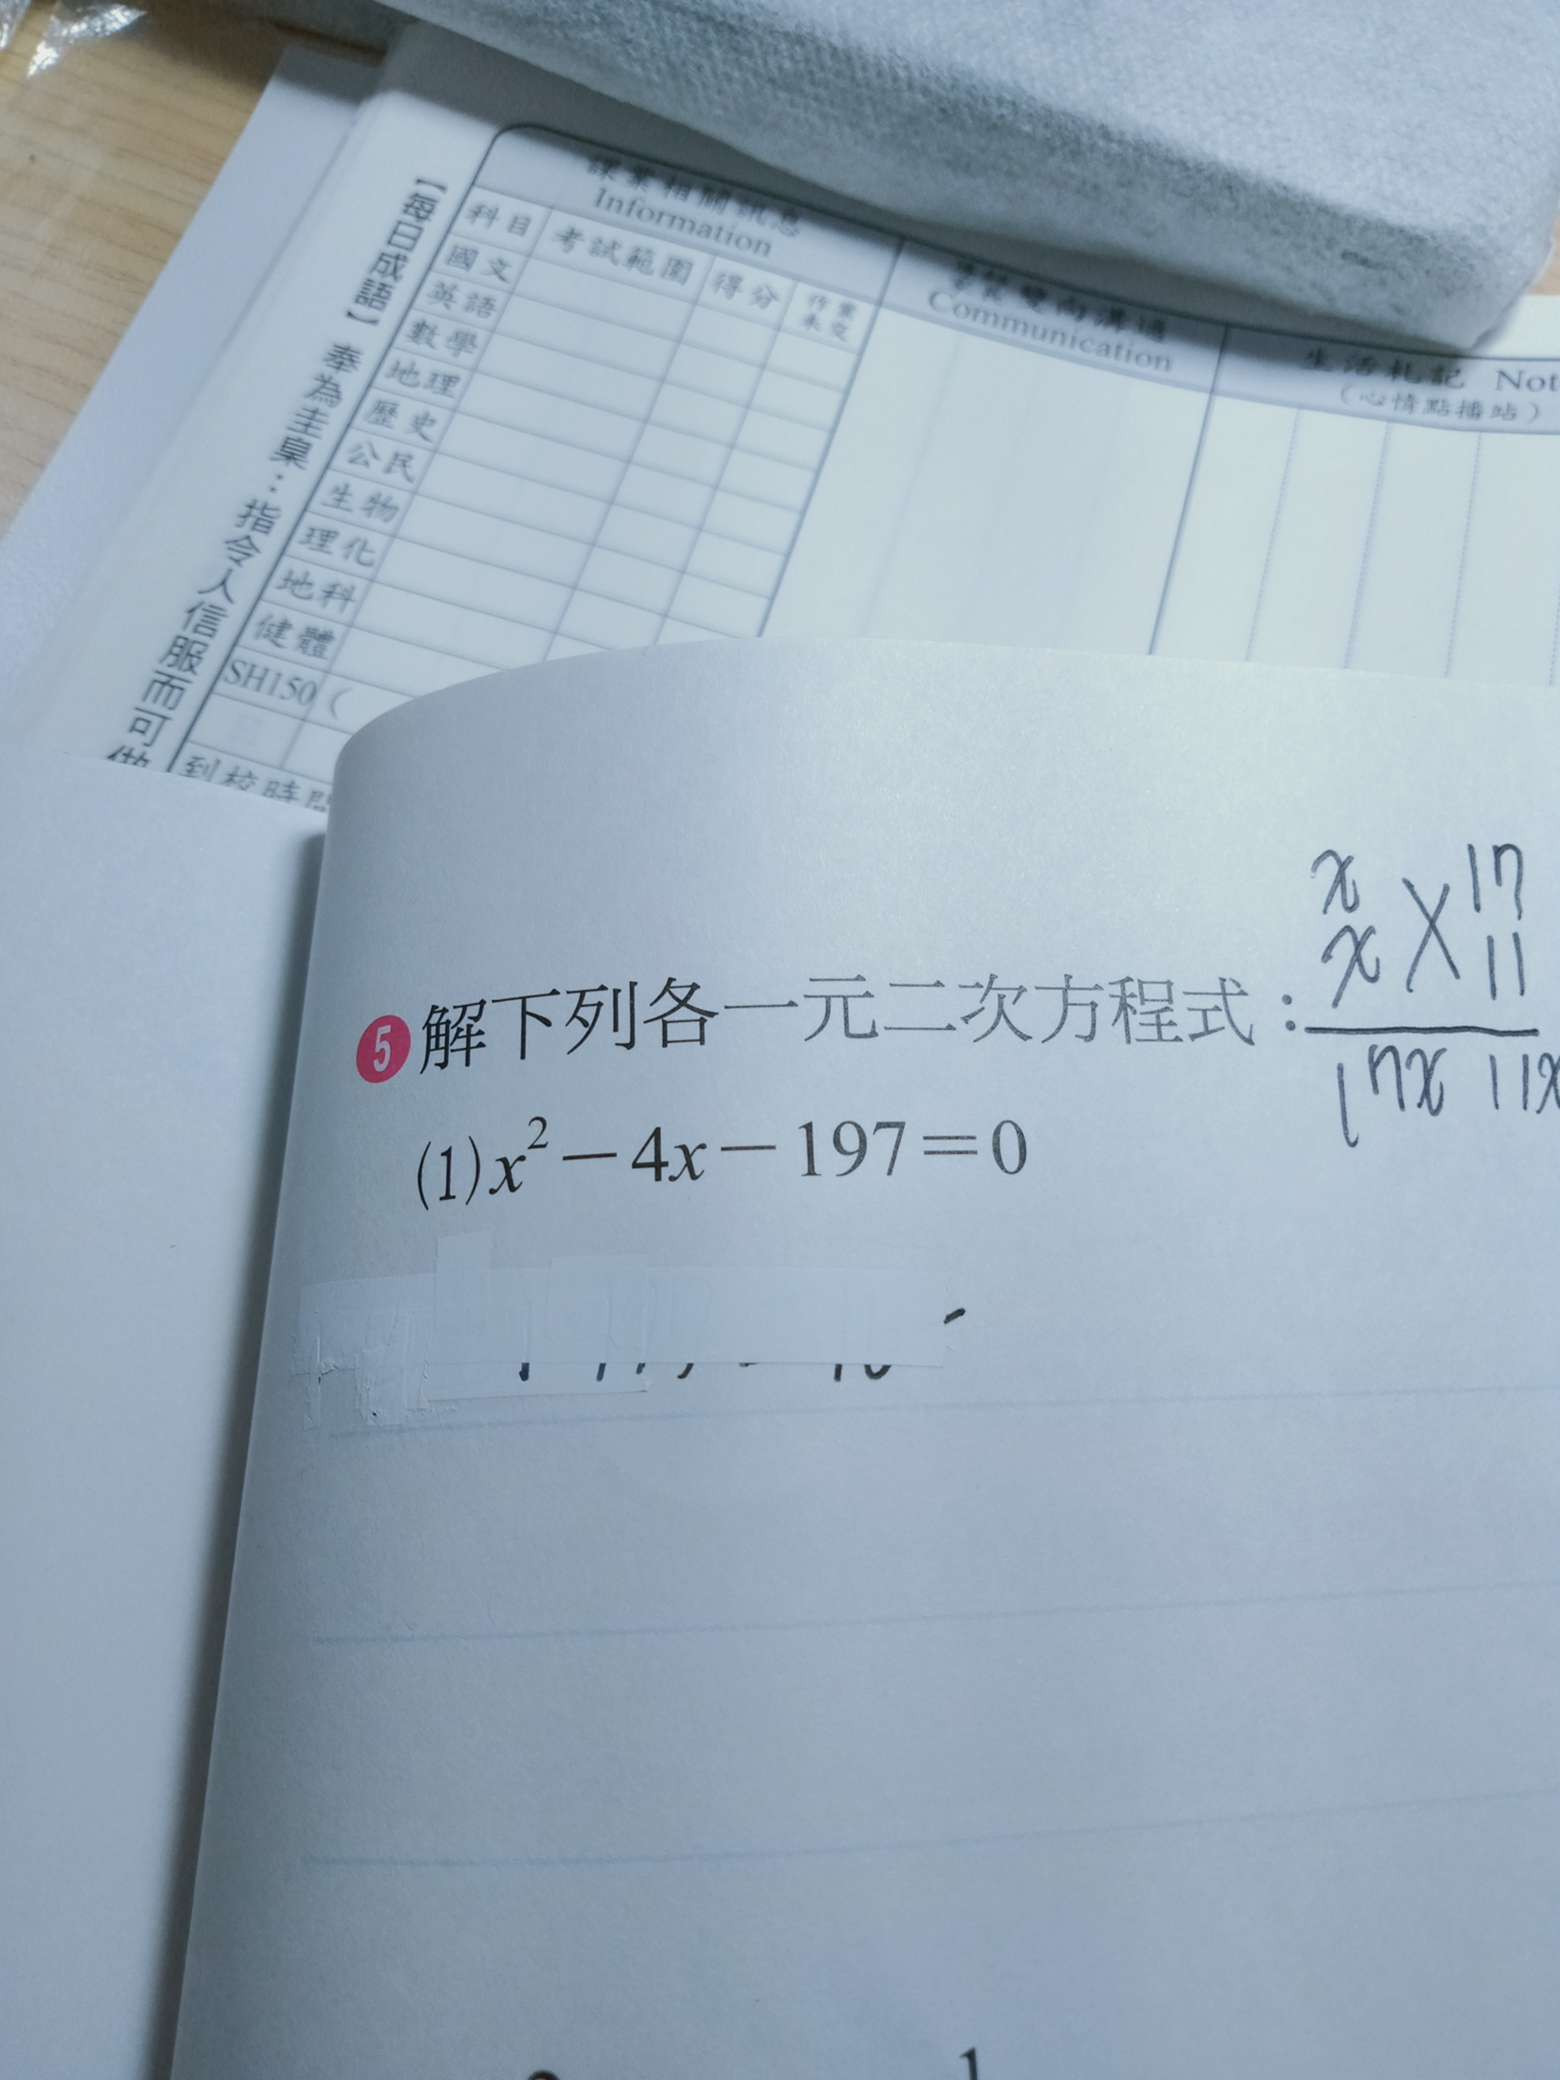 課業相關訊息
Information
科目 考試範圍 得分 作業未交
國文
英語
數學
地理
歷史
公民
生物
理化
地科
健體
SH150(
到校時間
Communication
生活札記 Not
(心情點播站)
【每日成語】奉為圭臬：指令人信服而可做
x 17
x 11
17x 11x
5 解下列各一元二次方程式：
(1) x² − 4x − 197 = 0